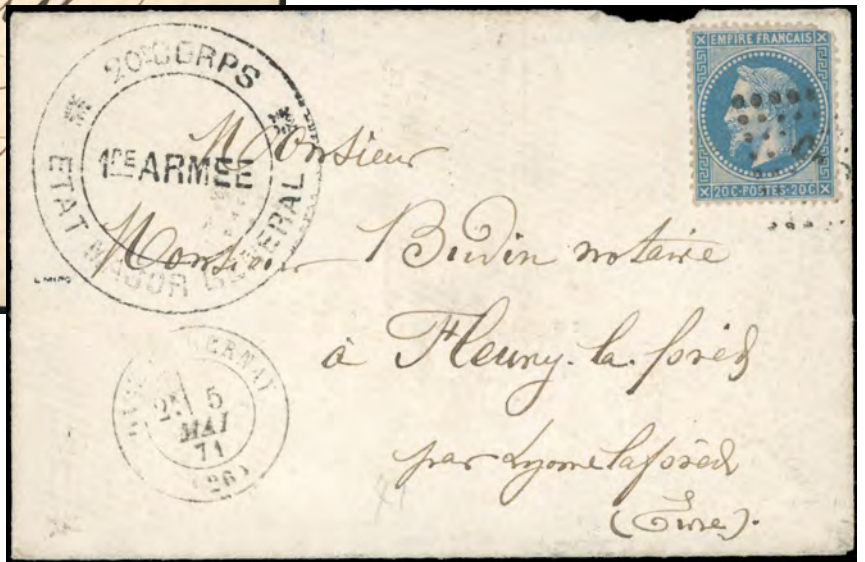 20E CORPS
1RE ARMEE
ETAT MAJOR GENERAL
EMPIRE FRANCAIS
20C·POSTES·20C
Monsieur
Monsieur Budin notaire
à Fleury. la. forêt
par Lyons laforêt
(Eure).
2E
5
MAI
71
(26)